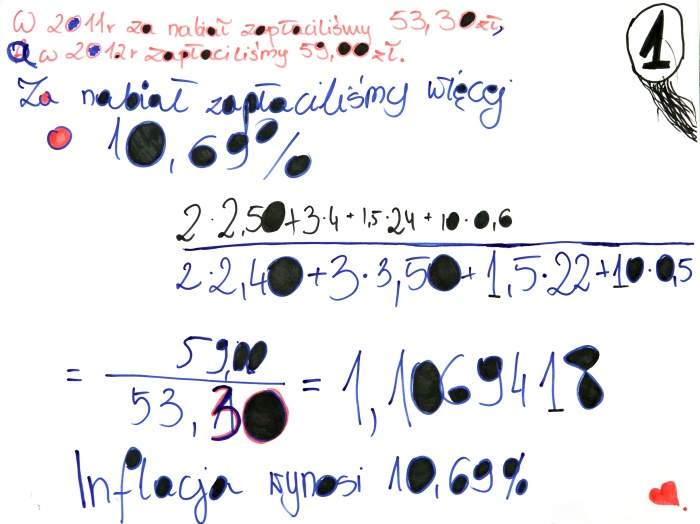 W 2011r za nabiał zapłaciliśmy 53,30zł,
a w 2012r zapłaciliśmy 59,00zł.
1
Za nabiał zapłaciliśmy więcej
o 10,69%
2·2,50+3·4+1,5·24+10·0,6
2·2,40+3·3,50+1,5·22+10·0,5
= 59,00
53,30 = 1,1069418
Inflacja wynosi 10,69%